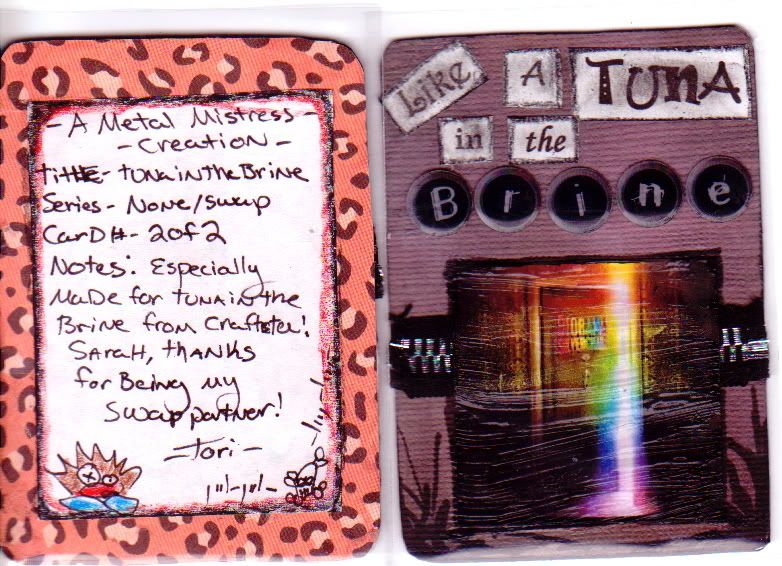 - A Metal Mistress -
- Creation -
title - tunainthebrine
Series - None/swap
Card# - 2of2
Notes: Especially
Made for tunainthe
Brine from Craftster!
Sarah, thanks
for Being my
Swap partner!
- Tori -
Like A TUNA
in the
Brine